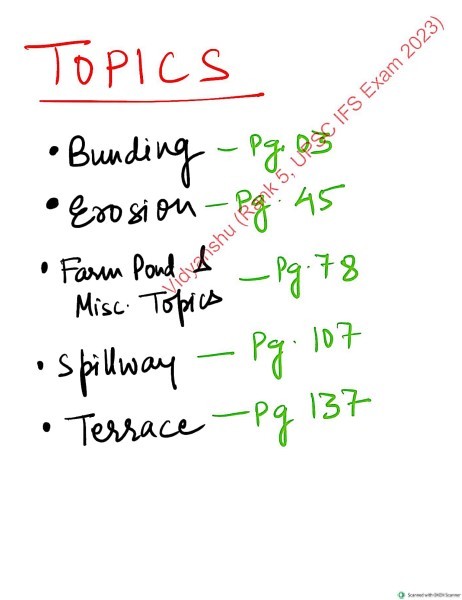 TOPICS
• Bunding – Pg. 03
• Erosion – Pg. 45
• Farm Pond &
Misc. Topics – Pg. 78
• Spillway – Pg. 107
• Terrace – Pg 137
Vidyanshu (Rank 5, UPSC IFS Exam 2023)
Scanned with OKEN Scanner